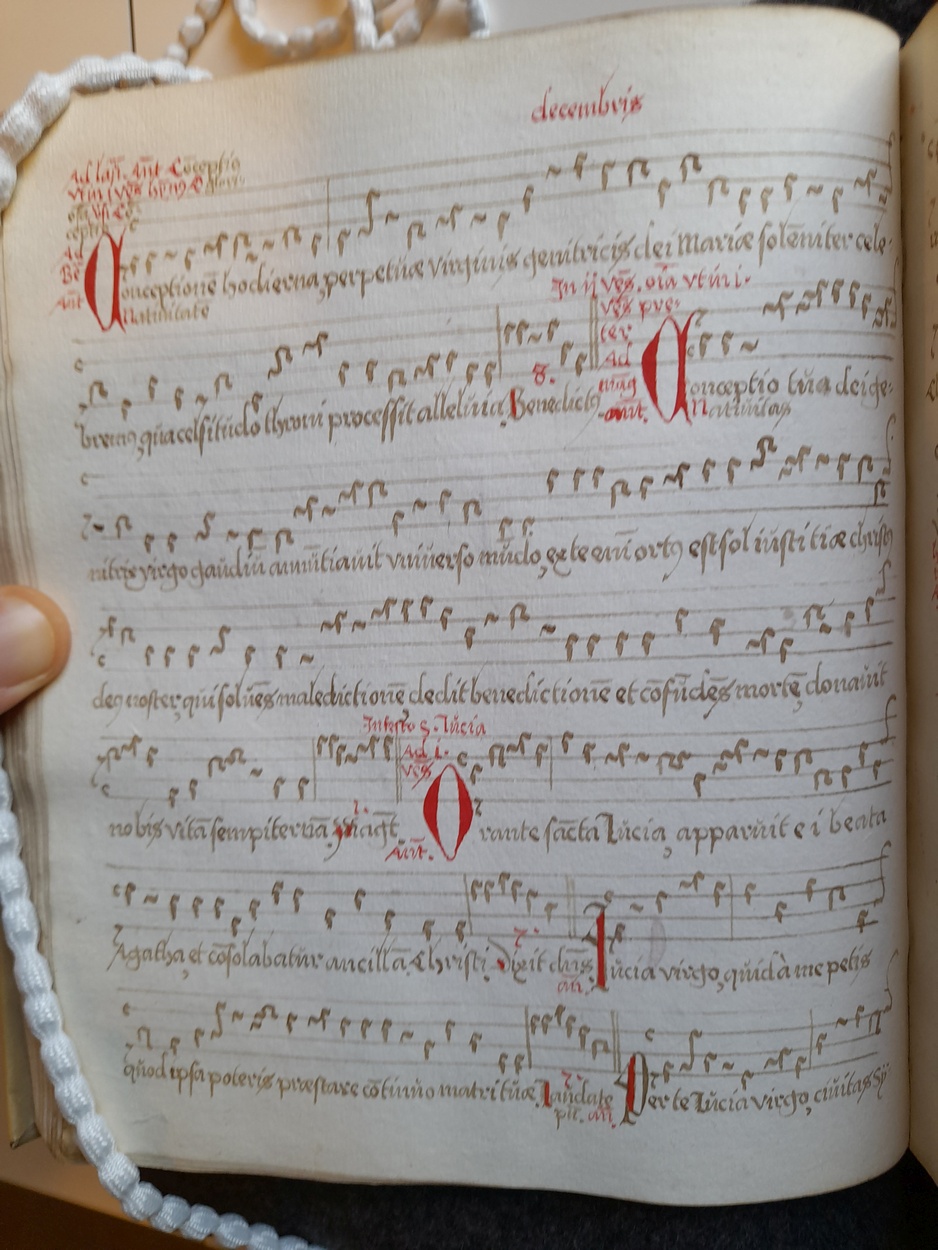 decembris
Ad lau. Ant Cōceptio
Ad
Be
Ant
Conceptionē hodierna, perpetuæ virginis genitricis dei Mariæ solēniter cele-
natiuitatē
In ij vēs. oīa vt in i.
vēs præ-
ter
Ad
mag
ant.
bremus, qua celsitudo throni processit alleluia. 8. Benedictus
Conceptio tua dei ge-
natiuitas
nitrix virgo gaudiū annūtiauit vniuerso mūdo, ex te enī ortus est sol iustitiæ christus
deus noster, qui soluēs maledictionē, dedit benedictionē et cōfūdēs mortē, donauit
In festo S. Lucia
Ad i.
vēs
nobis vitā sempiternā. 1.
Ant. Orante sācta Lucia, apparuit ei beata
Agatha, et cōsolabatur ancillā Christi. 7. Dixit dñs. an. Lucia virgo, quid à me petis
quod ipsa poteris præstare cōtinuo matri tuæ. 7. Laudate
pu. an. Per te Lucia virgo, ciuitas Sy